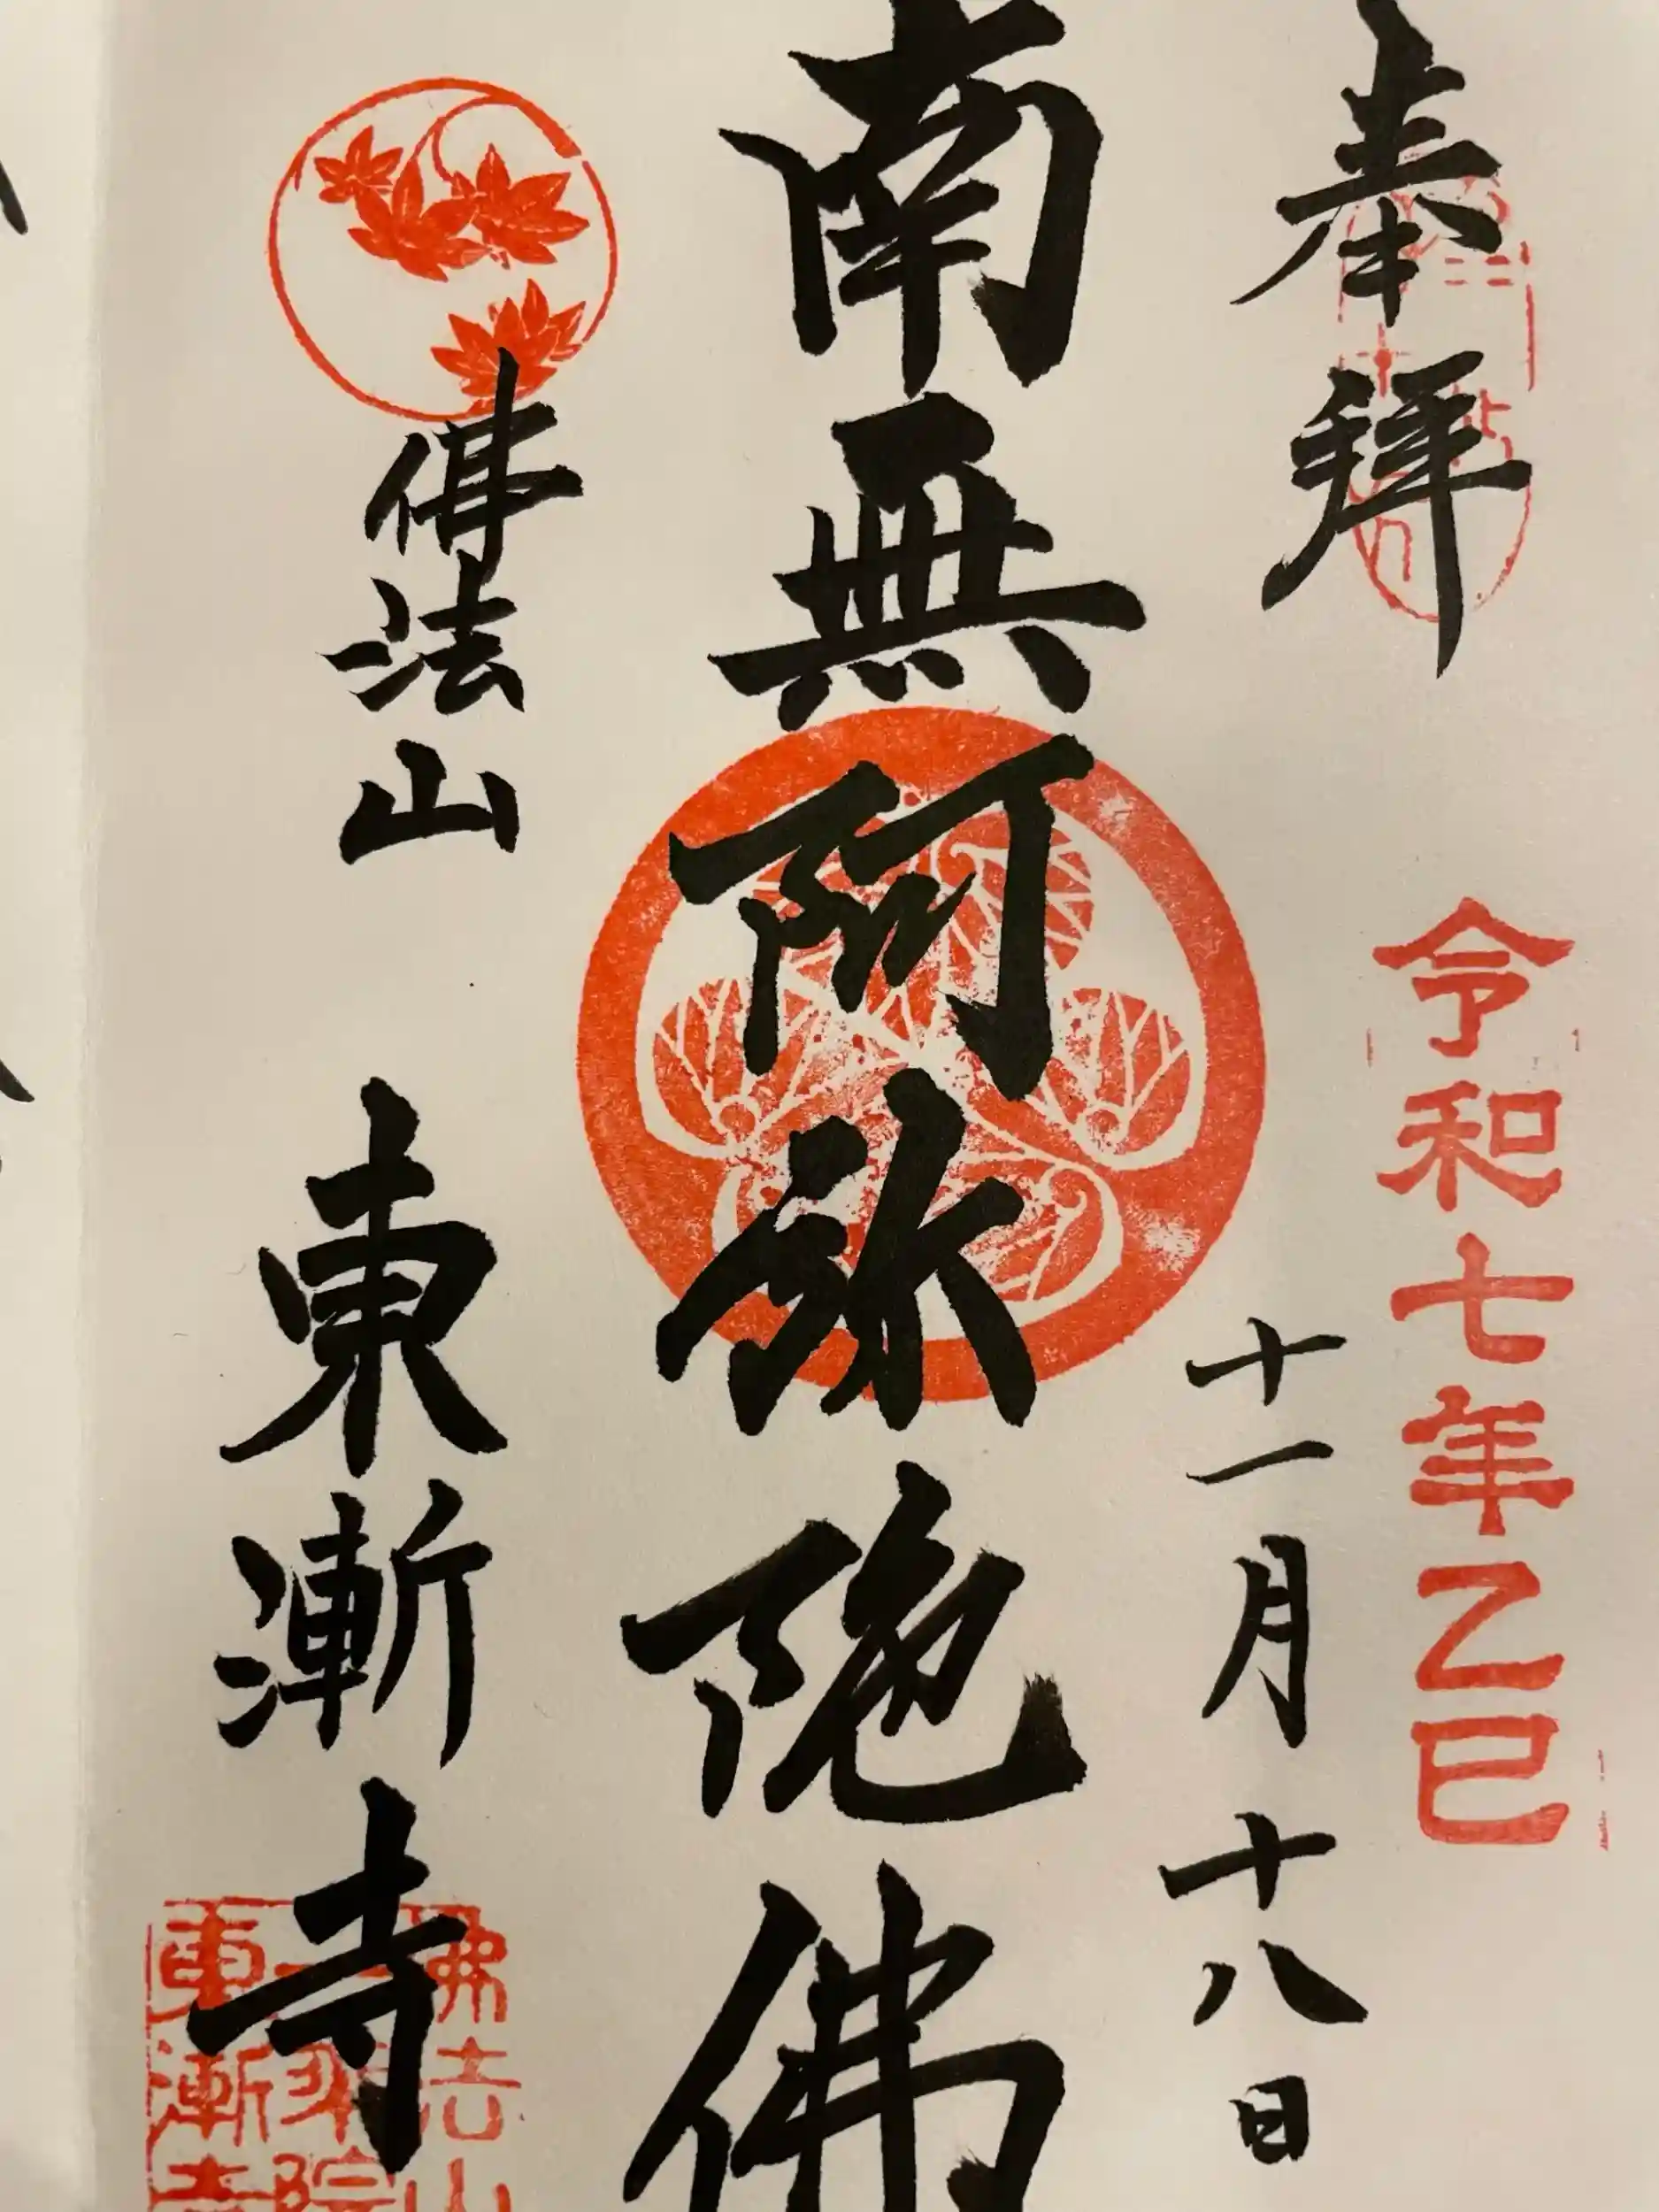 奉拝
令和七年乙巳
十一月十八日
南無阿弥陀佛
佛法山
東漸寺